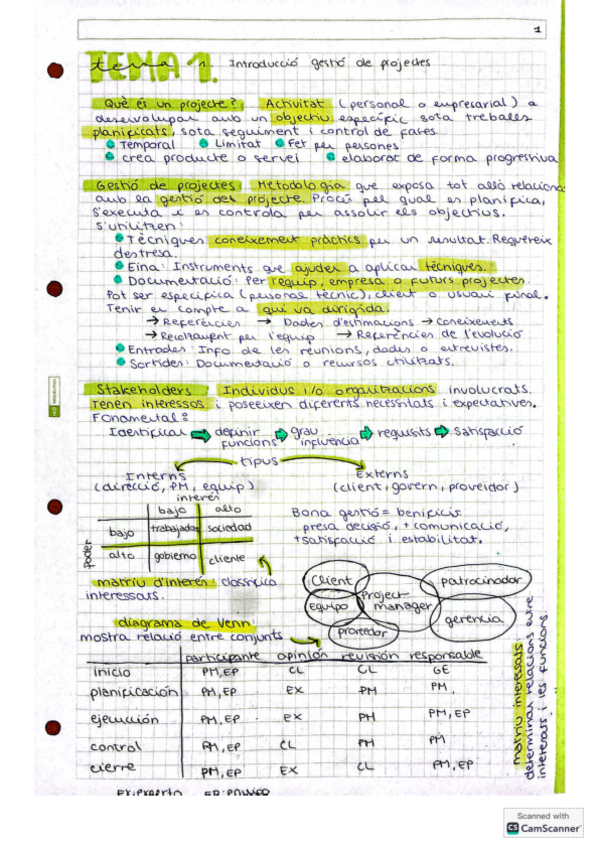 1
tema 1. Introducció gestió de projectes
Què és un projecte? Activitat (personal o empresarial) a
desenvolupar amb un objectiu específic sota treballs
planificats, sota seguiment i control de fases.
Temporal Limitat Fet per persones
crea producte o servei elaborat de forma progressiva
Gestió de projectes Metodologia que exposa tot allò relaciona
amb la gestió del projecte. Procés pel qual es planifica,
s'executa i es controla per assolir els objectius.
S'utilitzen:
Tècniques: coneixement pràctics per un resultat. Requereix
destresa.
Eina: Instruments que ajuden a aplicar tècniques.
Documentació: Per l'equip, empresa o futurs projectes.
Pot ser específica (personal tècnic), client o usuari final.
Tenir en compte a qui va dirigida.
→ Referències → Dades d'estimacions → Coneixements
→ Recolzament per l'equip → Referències de l'evolució
Entrades: Info de les reunions, dades o entrevistes.
Sortides: Documentació o recursos utilitzats.
Stakeholders: Individus i/o organitzacions involucrats.
Tenen interessos i poseeixen diferents necessitats i expectatives.
Fonamental:
Identificar → definir funcions → grau influència → requisits → satisfacció
tipus
Interns Externs
(direcció, PM, equip) (client, govern, proveidor)
interés
bajo alto
poder
bajo trabajador sociedad
alto gobierno cliente
Bona gestió = beneficis
presa decisió, + comunicació,
+satisfacció i estabilitat.
matriu d'interés: classifica
interessats.
client
Equipo
Project manager
proveedor
patrocinador
gerencia
diagrama de Venn:
mostra relació entre conjunts
participante opinión revisión responsable
inicio PM,EP CL CL GE
planificación PM,EP EX PM PM.
ejecución PM,EP EX PM PM,EP
control PM,EP CL PM PM
cierre PM,EP EX CL PM,EP
matriu interessats:
determinar relacions entre
interessats i les funcions.
EX:experto
Scanned with
CS CamScanner